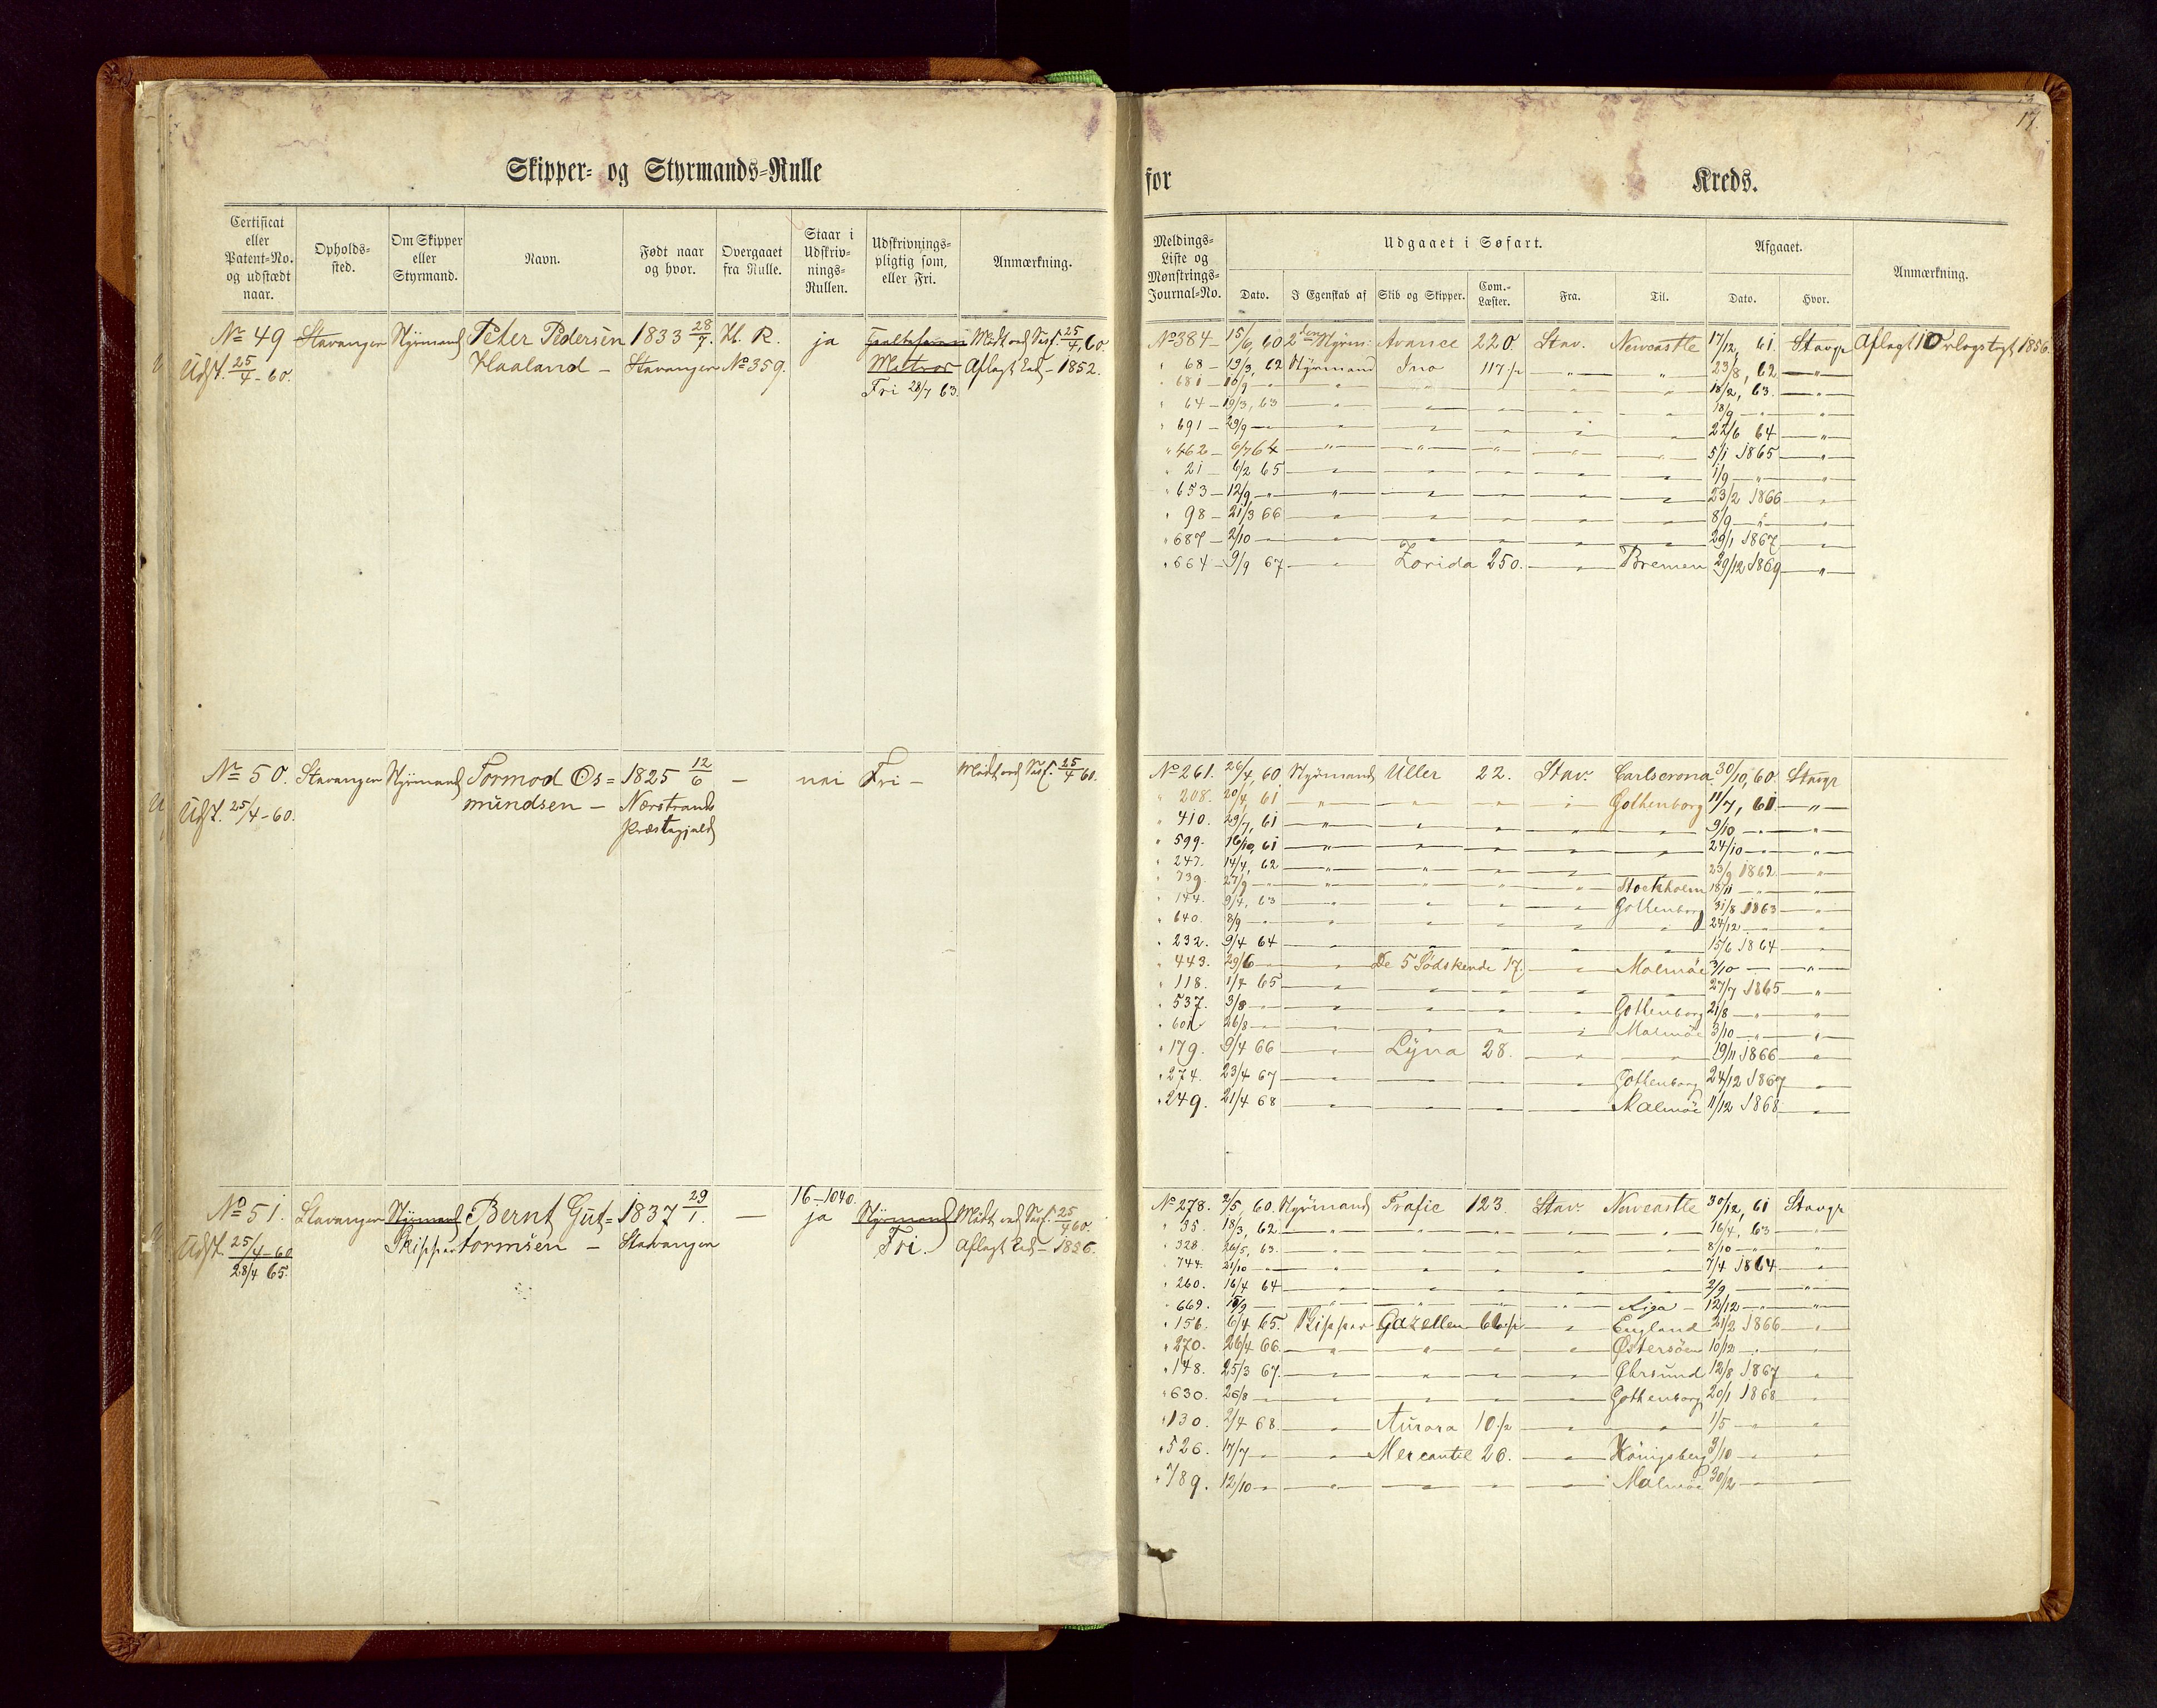 Skipper- og Styrmands-Rulle
Certificat eller Patent-No. og udstædt naar.
Opholds-sted.
Om Skipper eller Styrmand.
Navn.
Født naar og hvor.
Overgaaet fra Rulle.
Staar i Udskriv-nings-Rullen.
Udskrivnings-pligtig som, eller Fri.
Anmærkning.
No 49 Stavanger Styrmand Peter Pedersen 1833 28/7. H. R. ja Mødt ved Sess. 25/4, 60.
Udst. 25/4 - 60. Haaland - Stavanger No 359. Matros Aflagt Eed - 1852.
Fri 28/7 63.
No 50. Stavanger Styrmand Tormod Os= 1825 12/6 - nei Fri - Mødt ved Sess. 25/4 60.
Udst. 25/4 - 60. mundsen - Nærstrands
Præstegjeld
16-1040.
No 51. Stavanger Styrmand Bernt Gut= 1837 29/1. - ja Styrmand Mødt ved Sess. 25/4 60.
Udst. 25/4 - 60 Skipper tormsen - Stavanger Fri. Aflagt Eed - 1856.
28/4 65.
17.
for Kreds.
Meldings-Liste og Mønstrings-Journal-No.
Udgaaet i Søfart.
Afgaaet.
Anmærkning.
Dato. I Egenskab af Skib og Skipper. Com.-Læster. Fra. Til. Dato. Hvor.
No 384 - 15/6, 60 2den Styrm: Avance 220 Stav. Newcastle 17/12, 61. Stavgr Aflagt 1 Orlogstogt 1856.
" 68 - 19/3, 62 Styrmand Ino 117 1/2 - " - " 23/8, 62 - "
" 681 - 16/9 - " - " - " - " 18/2, 63. - "
" 64 - 19/3, 63 - " - " - " - " - " 18/9 - " - "
" 691 - 29/9 - " - " - " - " - " - " 22/6 64 - "
" 462 - 6/7 64 - " - " - " - " - " 5/1 1865 - "
" 21 - 6/2 65 - " - " - " - " - " 1/9 - " - "
" 653 - 12/9 - " - " - " - " - " - " 23/2 1866 - "
" 98 - 21/3 66 - " - " - " - " - " 8/9 - " - "
" 687 - 2/10 - " - " - " - " - " - " 29/1 1867 - "
" 664 - 9/9 67 - " Zorida 250. - " Bremen 29/12 1869 - "
No 261. 26/4, 60 Styrmand Uller 22. Stav. Carlscrona 30/10, 60. Stavgr
" 208. 20/4, 61 - " - " - " - " Gothenborg 11/7, 61. - "
" 410. 29/7, 61 - " - " - " - " - " 9/10 - " - "
" 599. 16/10, 61 - " - " - " - " - " 24/10 - " - "
" 247. 14/4, 62 - " - " - " - " - " 23/9 1862 - "
" 739. 27/9 - " - " - " - " - " Stockholm 18/11 - " - "
" 144. 9/4, 63 - " - " - " - " Gothenborg 31/8 1863 - "
" 640. 8/9 - " - " - " - " - " - " 24/12 - " - "
" 232. 9/4 64 - " - " - " - " - " 15/6 1864 - "
" 443. 29/6 - " - " De 5 Södskende 17. - " Malmöe 3/10 - " - "
" 118. 1/4 65 - " - " - " - " - " 27/7 1865 - "
" 537. 3/8 - " - " - " - " - " Gothenborg 21/8 - " - "
" 601 26/8 - " - " - " - " - " Malmöe 3/10 - " - "
" 179. 9/4 66 - " Lyna 28. - " - " 19/11 1866 - "
" 274. 23/4 67 - " - " - " - " Gothenborg 24/12 1867 - "
" 249. 21/4 68 - " - " - " - " Malmöe 11/12 1868 - "
No 278. 2/5, 60. Styrmand Trafic 123. Stav. Newcastle 30/12, 61 Stavgr
" 35. 18/3, 62. - " - " - " - " - " 16/4, 63 - "
" 328. 26/5, 63. - " - " - " - " - " 8/10 - " - "
" 744. 21/10 - " - " - " - " - " - " 7/4 1864 - "
" 260. 16/4 64 - " - " - " - " - " 2/9 - " - "
" 669. 15/9 - " - " - " - " - " Riga - 12/12 - " - "
" 156. 6/4 65. Skipper Gazellen 66 1/2 - " England 21/2 1866 - "
" 270. 26/4 66. - " - " - " - " Østersöen 10/12 - " - "
" 148. 25/3 67. - " - " - " - " Öhrsund 12/8 1867 - "
" 630. 26/8 - " - " - " - " - " Gothenborg 20/1 1868 - "
" 130. 2/4 68. - " Aurora 10 1/2 - " - " 1/5 - " - "
" 526. 17/7 - " - " Mercantil 26. - " Königsberg 3/10 - " - "
" 789. 12/10 - " - " - " - " - " Malmöe 30/12 - " - "